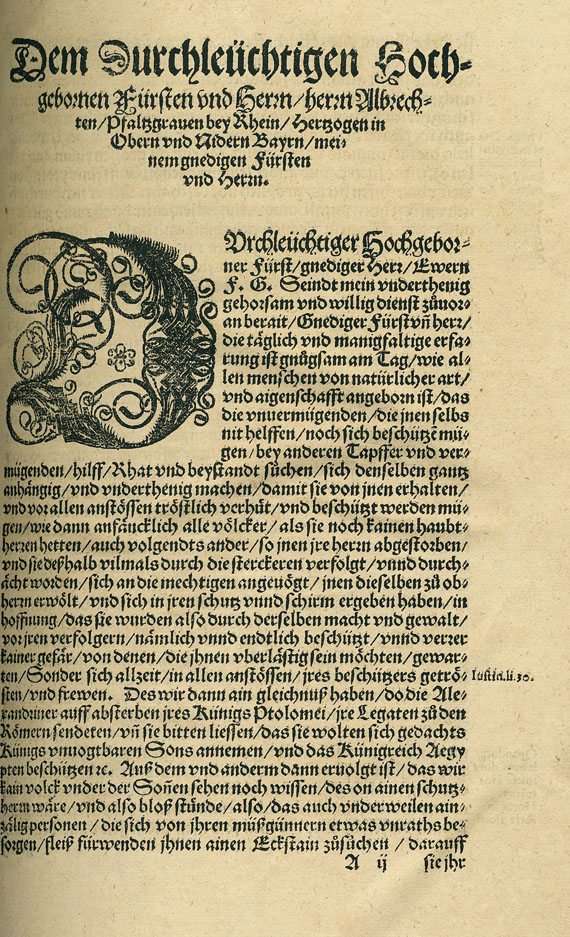 Dem Durchleüchtigen Hoch-
gebornen Fürsten vnd Herrn/herrn Albrech-
ten/Pfaltzgrauen bey Rhein/Hertzogen in
Obern vnd Nidern Bayrn/mei-
nem gnedigen Fürsten
vnd Herrn.
DVrchleüchtiger Hochgebor-
ner Fürst/gnediger Herr/Ewern
F. G. Seindt mein vnderthenig
gehorsam vnd willig dienst zůuor-
an berait/Gnediger Fürst vñ herr/
die täglich vnd manigfaltige erfa-
rung ist gnůgsam am Tag/wie al-
len menschen von natürlicher art/
vnd aigenschafft angeborn ist/das
die vnuermügenden/die jnen selbs
nit helffen/noch sich beschützẽ mü-
gen/bey anderen Tapffer vnd ver-
mügenden/hilff/Rhat vnd beystandt sůchen/sich denselben gantz
anhängig/vnd vnderthenig machen/damit sie von jnen erhalten/
vnd vor allen anstössen tröstlich verhüt/vnd beschützt werden mü-
gen/wie dann anfäncklich alle völcker/als sie noch kainen haubt-
herren hetten/auch volgendts ander/so jnen jre herrn abgestorben/
vnd sie deßhalb vilmals durch die sterckeren verfolgt/vnnd durch-
ächt worden/sich an die mechtigen angeuögt/jnen dieselben zů ob-
herrn erwölt/vnd sich in jren schutz vnnd schirm ergeben haben/in
hoffnung/das sie wurden also durch derselben macht vnd gewalt/
vor jren verfolgern/nämlich vnnd endtlich beschützt/vnnd verrer
kainer gefär/von denen/die jhnen vberlästig sein möchten/gewar-
ten/Sonder sich allzeit/in allen anstössen/jres beschützers getrö-
Iustin.li.30.
sten/vnd frewen. Des wir dann ain gleichnuß haben/do die Ale-
xandriner auff absterben jres Künigs Ptolomei/jre Legaten zů den
Römern sendeten/vñ sie bitten liessen/das sie wolten sich gedachts
Künigs vnuogtbaren Sons annemen/vnd das Künigreich Aegy
pten beschützen ꝛc. Auß dem vnd anderm dann eruolgt ist/das wir
kain volck vnder der Soñen sehen noch wissen/des on ainen schutz-
herrn wäre/vnd also bloß stände/also/das auch vnderweilen ain-
tzälig personen/die sich von jhren mißgünnern etwas vnraths be-
sorgen/fleiß fürwenden jhnen ainen Eckstain zůsůchen/darauff
A ij sie jhr